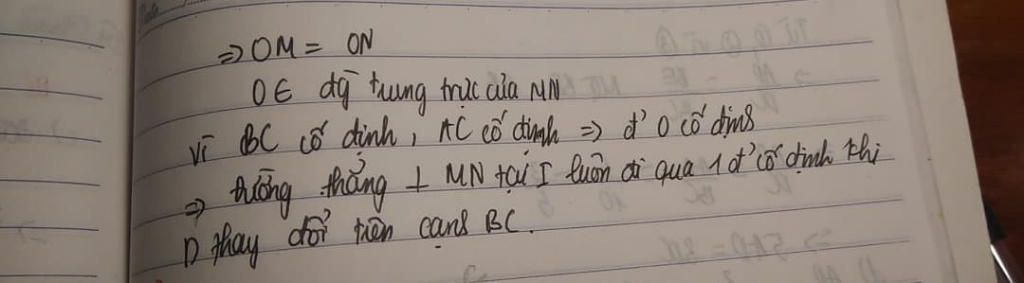 => OM = ON
O ∈ đg trung trực của MN
Vì BC cố định, AC cố định => đ' O cố định
=> đường thẳng ⊥ MN tại I luôn đi qua 1 đ' cố định khi
D thay đổi trên cạnh BC.